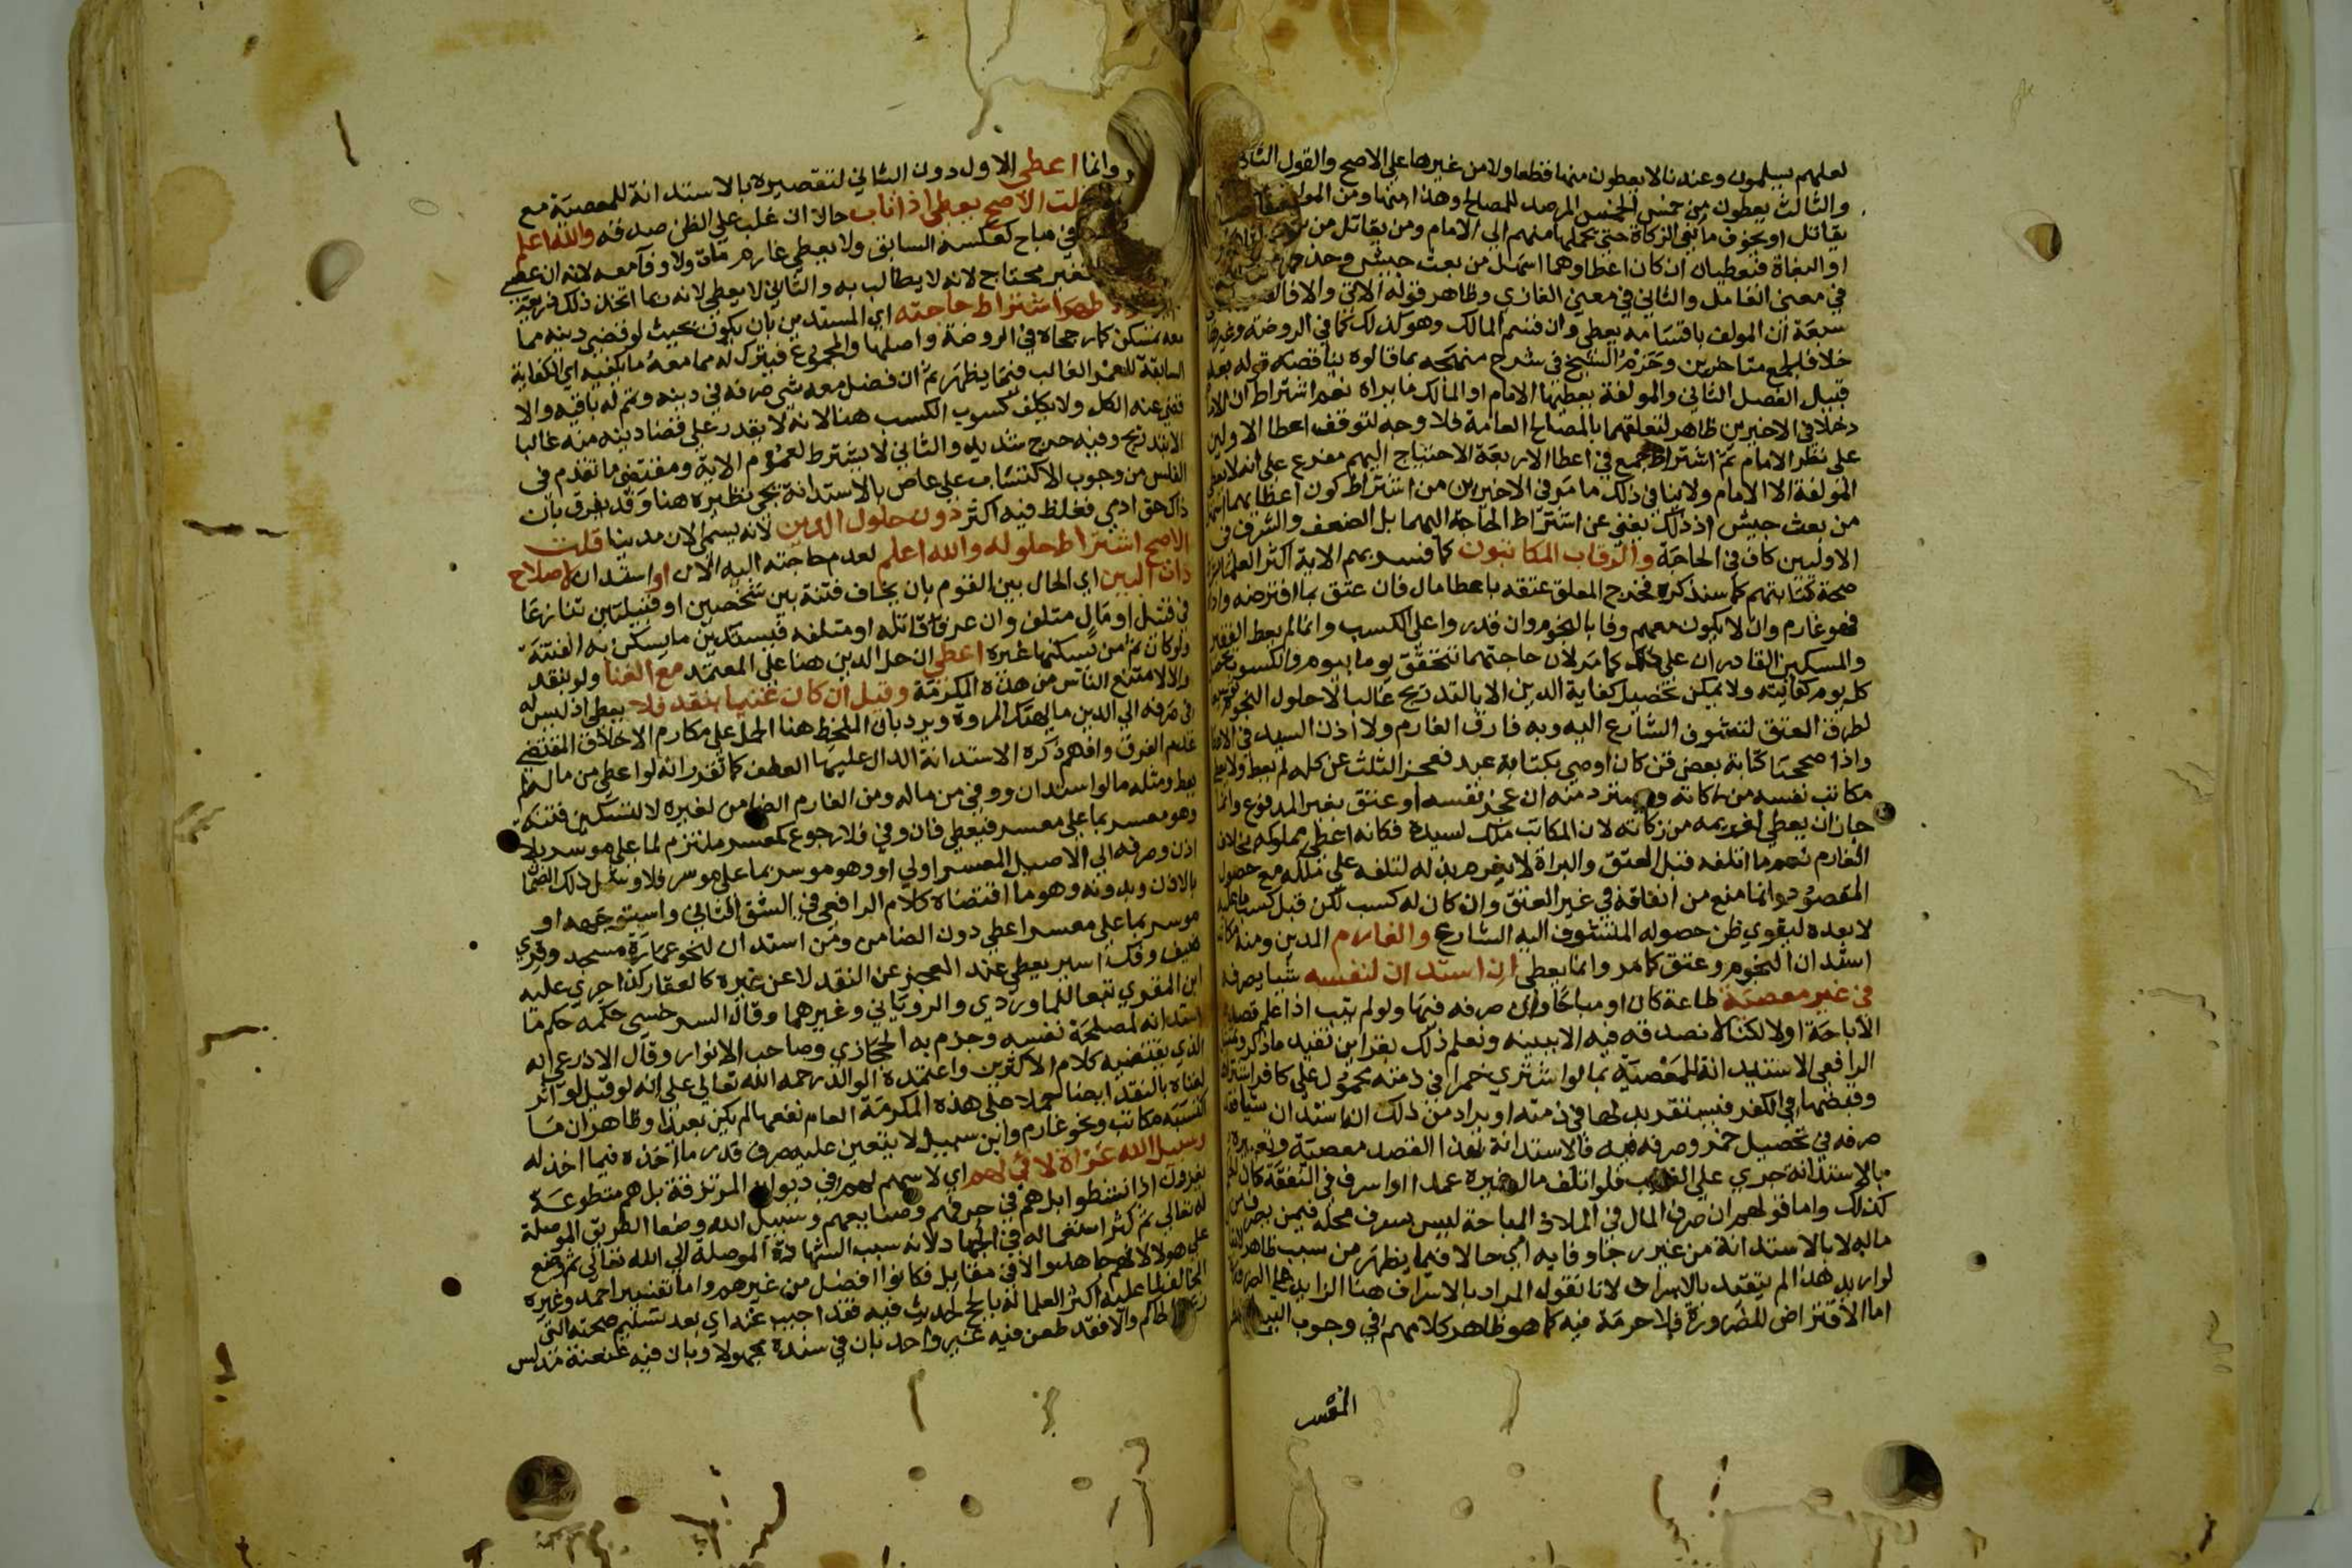 لعلهم يسلمون وعندنا لا يعطون منها قطعا ولا من غيرها على الاصح والقول الثاني
والثالث يعطون من خمس الخمس المرصد للمصالح وهذا منها ومن المولفة
يقاتل او يخوف مانعي الزكاة حتى يحملها منهم الي الامام ومن يقاتل من
او البغاة فيعطيان ان كان اعطاوهما اسهل من بعث جيش وحذف
في معنى العامل والثاني في معنى الغازي وظاهر قوله الاتي والا فالقسمة
سبعة ان المولف باقسامه يعطي وان قسم المالك وهو كذلك كما في الروضة وغيرها
خلافا لجمع متاخرين وجزم الشيخ في شرح منهجه بما قالوه يناقضه قوله بعد
قبيل الفصل الثاني والمولفة يعطيها الامام او المالك ما يراه نعم اشتراط ان للامام
دخلا في الاخيرين ظاهر لتعلقهما بالمصالح العامة فلا وجه لتوقف اعطا الاولين
على نظر الامام ثم اشتراط جمع في اعطا الاربعة الاحتياج اليهم مفرع على انه لا يعطي
المولفة الا الامام ولا ينافي ذلك ما مر في الاخيرين من اشتراط كون اعطايهما اسهل
من بعث جيش اذ ذلك يغني عن اشتراط الحاجة اليهما بل الضعف والشرف في
الاوليين كاف في الحاجة والرقاب المكاتبون كما فسر بهم الاية اكثر العلما
صحة كتابتهم كما سنذكره فخرج المعلق عتقه باعطا مال فان عتق بما اقترضه واداه
فهو غارم وان لا يكون معهم وفا بالنجوم وان قدروا على الكسب وانما لم يعط الفقير
والمسكين القادران على ذلك كما مر لان حاجتهما تتحقق يوما بيوم والكسوب يحصل
كل يوم كفايته ولا يمكن تحصيل كفاية الدين الا بالتدريج غالبا لا حلول النجوم
لطرف العتق لتشوف الشارع اليه وبه فارق الغارم ولا اذن السيد في الاعطا
واذا صححنا كتابة بعض قن كان اوصى بكتابة عبد فعجز الثلث عن كله لم يعط ولا يعطي
مكاتب نفسه من زكاته ويسترد منه ان عجز نفسه او عتق بغير المدفوع وانما
جاز ان يعطي لغريمه من زكاته لان المكاتب ملك لسيده فكانه اعطى مملوكه بخلاف
الغارم نعم ما اتلفه قبل العتق والبراة لا يغرم بدله لتلفه على ملكه مع حصول
المقصود وانما منع من انفاقه في غير العتق وان كان له كسب لكن قبل كسب ما عليه
لا بعده ليقوي ظن حصوله المتشوف اليه الشارع والغارم المدين ومنه مكاتب
استدان للنجوم وعتق كما مر وانما يعطي ان استدان لنفسه شيا يصرفه
في غير معصية طاعة كان او مباحا وان صرفه فيها ولو لم يتب اذا علم قصده
الاباحة اولا لكنا لا نصدقه فيه الا ببينة ونعلم ذلك بقراين تفيد ما ذكر
الرافعي الاستدانة للمعصية بما لو اشترى خمرا في ذمته محمول على كافر اشتراه
وقبضها في الكفر فيستقر بدلها في ذمته او يراد من ذلك انه استدان شيا بقصد
صرفه في تحصيل خمر وصرفه فيه فالاستدانة بهذا القصد معصية وتعبيره
بالاستدانة جري على الغالب فلو اتلف مال غيره عمدا او اسرف في النفقة كان الحكم
كذلك واما قولهم ان صرف المال في الملاذ المباحة ليس بسرف محله فيمن يصرف من
ماله لا بالاستدانة من غير رجا وفايه اي حالا فيما يظهر من سبب ظاهر
لو اريد هذا لم يتقيد بالاسراف لانا نقول المراد بالاسراف هنا الزايد على الضرورة
اما الاقتراض للضرورة فلا حرمة فيه كما هو ظاهر كلامهم في وجوب البيع
المفسر
وانما اعطي الاول دون الثاني لتقصيره بالاستدانة للمعصية مع
قلت الاصح يعطي اذا تاب حالا ان غلب على الظن صدقه والله اعلم
في مباح كعكسه السابق ولا يعطي غارم مات ولا وفا معه لانه ان عصى
فغير محتاج لانه لا يطالب به والثاني لا يعطي لانه ربما اتخذ ذلك ذريعة
والاظهر اشتراط حاجته اي المستدين بان يكون بحيث لو قضي دينه مما
معه تمسكن كما رجحاه في الروضة واصلها والمجموع فيترك له مما معه ما يكفيه اي الكفاية
السابقة للعمر الغالب فيما يظهر ثم ان فضل معه شي صرفه في دينه وتمم له باقيه والا
قضي عنه الكل ولا يكلف كسوب الكسب هنا لانه لا يقدر على قضا دينه منه غالبا
الا بتدريج وفيه حرج شديد والثاني لا يشترط لعموم الاية ومقتضى ما تقدم في
الفلس من وجوب الاكتساب على عاص بالاستدانة يجي نظيره هنا وقد يفرق بان
ذاك حق ادمي فغلظ فيه اكثر دون حلول الدين لانه يسمي الان مدينا قلت
الاصح اشتراط حلوله والله اعلم لعدم حاجته اليه الان او استدان لاصلاح
ذات البين اي الحال بين القوم بان يخاف فتنة بين شخصين او قبيلتين تنازعا
في قتيل او مال متلف وان عرف قاتله او متلفه فيستدين ما يسكن به الفتنة
ولو كان ثم من يسكنها غيره اعطي ان حل الدين هنا على المعتمد مع الغنا ولو بنقد
والا لامتنع الناس من هذه المكرمة وقيل ان كان غنيا بنقد فلا يعطي اذ ليس له
في صرفه الي الدين ما يهتك المروة ويرد بان الملحظ هنا الحمل على مكارم الاخلاق المقتضي
عدم الفرق وافهم ذكره الاستدانة الدال عليها العطف كما تقدر انه لو اعطى من ماله لم
يعط ومثله ما لو استدان ووفي من ماله ومن الغارم الضامن لغيره لا لتسكين فتنة
وهو معسر بما على معسر فيعطي فان وفي فلا رجوع كمعسر ملتزم لما على موسر بلا
اذن وصرفه الي الاصيل المعسر اولي او وهو موسر بما على موسر فلا وشمل ذلك الضمان
بالاذن وبدونه وهو ما اقتضاه كلام الرافعي في الشق الثاني واستوجهه او
موسر بما على معسر اعطي دون الضامن ومن استدان لنحو عمارة مسجد وقري
ضيف وفك اسير يعطي عند العجز عن النقد لا عن غيره كالعقار كذا جري عليه
ابن المقري تبعا للماوردي والروياني وغيرهما وقال السرخسي حكمه حكم ما
استدانه لمصلحة نفسه وجزم به الحجازي وصاحب الانوار وقال الاذرعي انه
الذي يقتضيه كلام الاكثرين واعتمده الوالد رحمه الله تعالى على انه لو قيل لو اثر
لغناه بالنقد ايضا حملا على هذه المكرمة العام نفعها لم يكن بعيدا وظاهر ان ما
اكتسبه مكاتب ونحو غارم وابن سبيل لا يتعين عليه صرف قدر ما اخذه فيما اخذ له
وسبيل الله غزاة لا في لهم اي لا سهم لهم في ديوان المرتزقة بل هم متطوعة
يغزون اذا نشطوا بل هم في حرفهم وصنايعهم وسبيل الله وضعا الطريق الموصلة
له تعالى ثم كثر استعماله في الجهاد لانه سبب الشهادة الموصلة الي الله تعالى ثم وضع
على هولا لانهم جاهدوا لا في مقابل فكانوا افضل من غيرهم واما تفسير احمد وغيره
المخالف لما عليه اكثر العلما له بالحج لحديث فيه فقد اجيب عنه اي بعد تسليم صحته التي
زعمها الحاكم والا فقد طعن فيه غير واحد بان في سنده مجهولا وبان فيه عنعنة مدلس